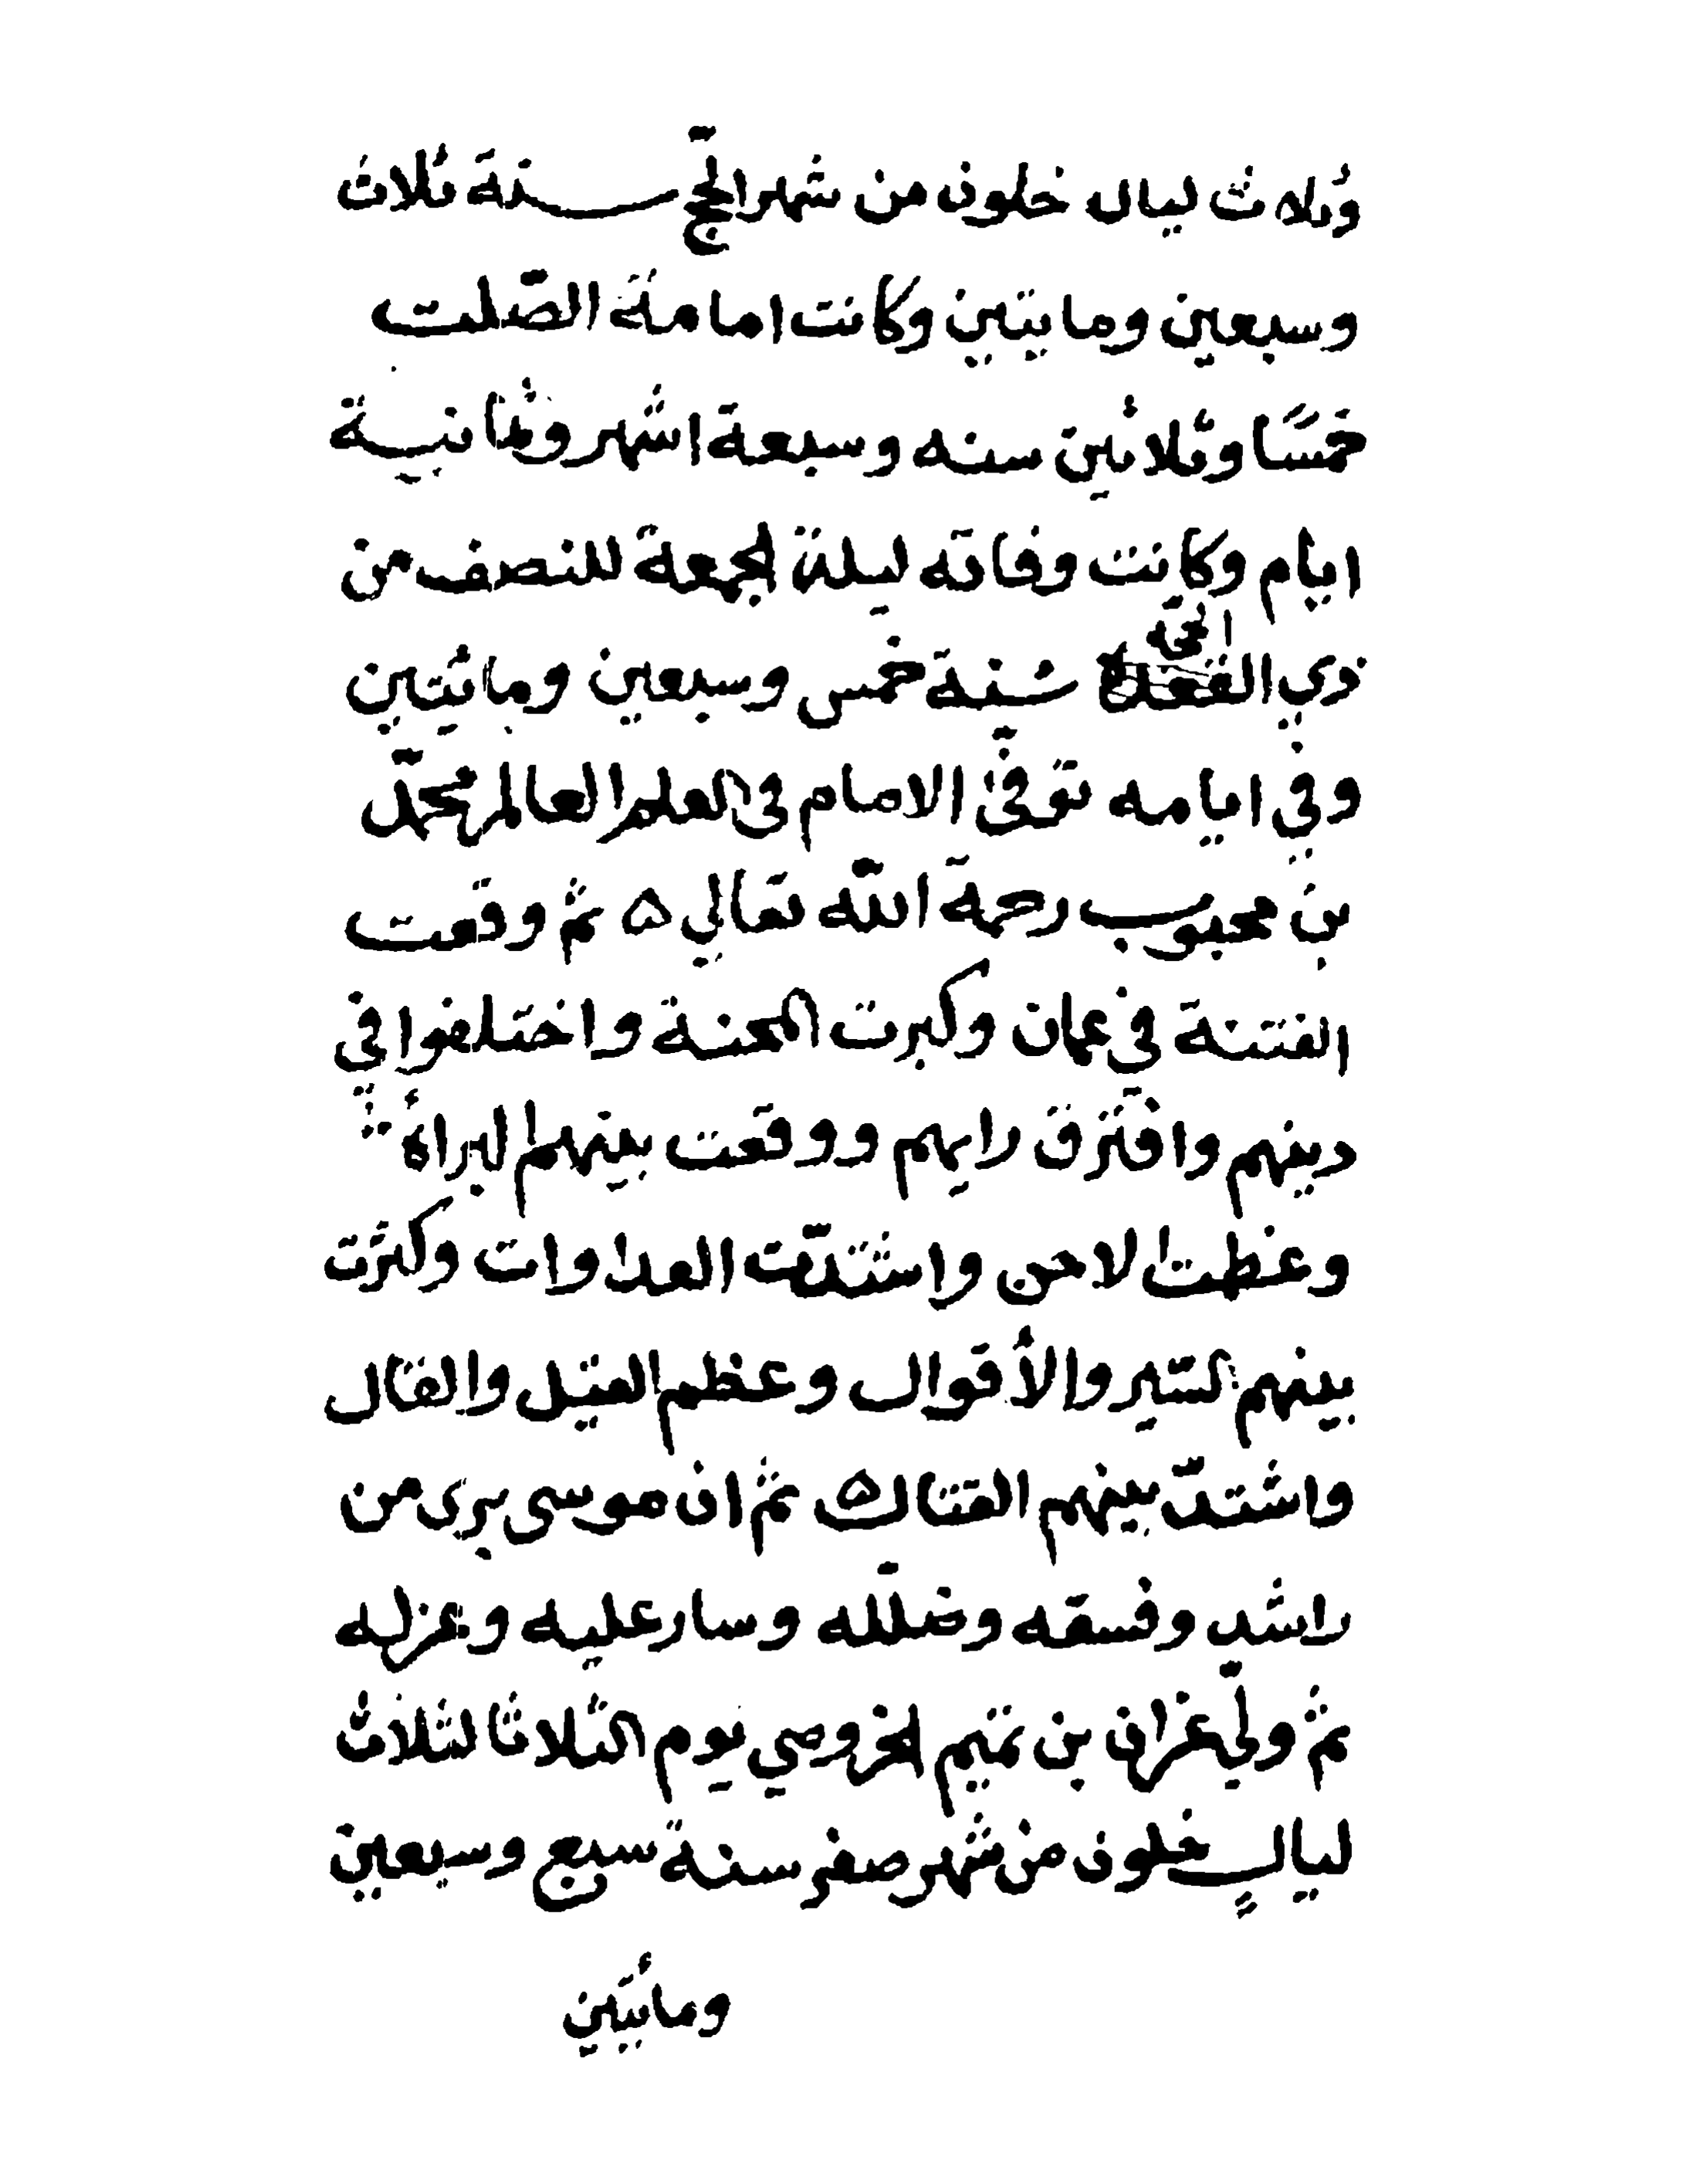 وثلاث ليال خلون من شهر الحج سنة ثلاث
وسبعين ومايتين وكانت امامة الصّلت
خمسًا وثلاثين سنه وسبعة اشهر وثمانية
ايام وكانت وفاته ليلة الجمعة للنصف من
الحج
ذي القعدة سنة خمس وسبعين ومائتين
وفي ايامه توفّى الامام في العلم العالم محمّد
بن محبوب رحمة الله تعالي ۵ ثم وقعت
الفتنة في عمان وكبرت المحنة واختلفوا في
دينهم وافترق رايهم ووقعت بينهم البرأة
وعظمت الاحن واشتدّت العداوات وكثرت
بينهم السير والأقوال وعظم القيل والقال
واشتدّ بينهم القتال ۵ ثم ان موسى برى من
راشد وفسقه وضلّله وسار عليه وعزله
ثم ولّي عزان بن تميم الخروصي يوم الثلاثا لثلاث
ليالٍ خلون من شهر صفر سنة سبع وسبعين
ومأيتين